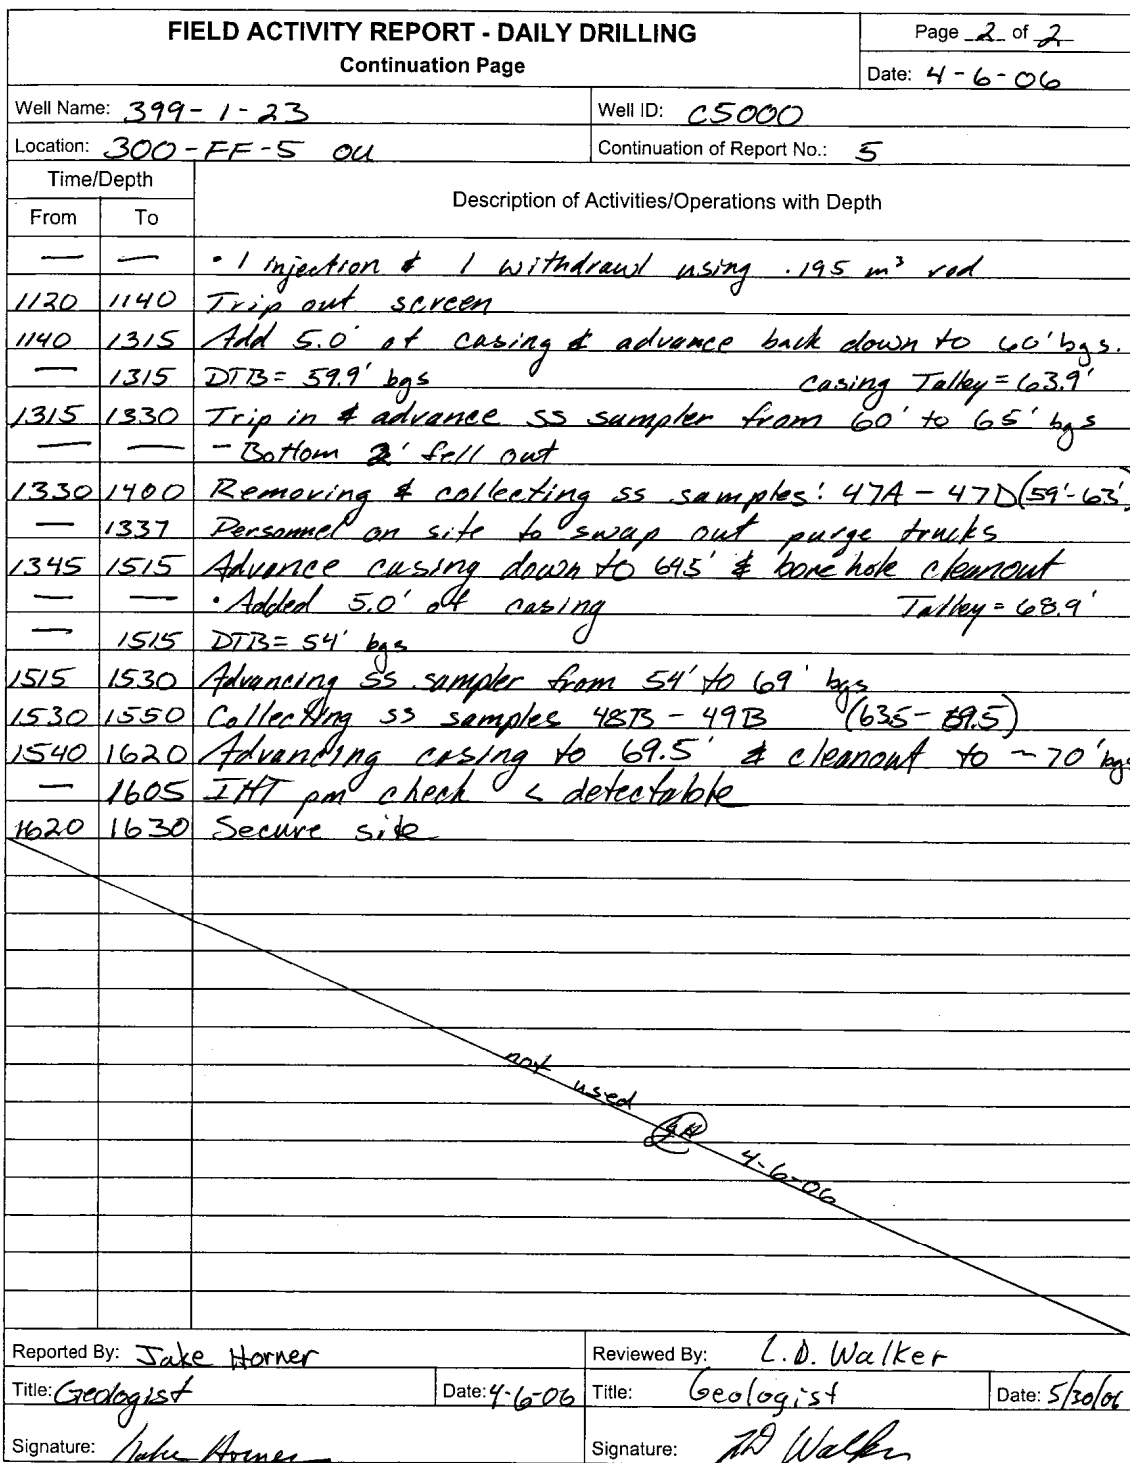 FIELD ACTIVITY REPORT - DAILY DRILLING
Continuation Page
Page 2 of 2
Date: 4-6-06
Well Name: 399-1-23
Well ID: C5000
Location: 300-FF-5 OU
Continuation of Report No.: 5
Time/Depth
From To
Description of Activities/Operations with Depth
— — • 1 injection & 1 withdrawl using .195 m³ rod
1120 1140 Trip out screen
1140 1315 Add 5.0' of casing & advance back down to 60' bgs.
— 1315 DTB= 59.9' bgs casing Talley = 63.9'
1315 1330 Trip in & advance SS sampler from 60' to 65' bgs
— — - Bottom 2' fell out
1330 1400 Removing & collecting ss samples: 47A - 47D (59'-63')
— 1337 Personnel on site to swap out purge trucks
1345 1515 Advance casing down to 645' & bore hole cleanout
— — • Added 5.0' of casing Talley = 68.9'
— 1515 DTB= 54' bgs
1515 1530 Advancing SS sampler from 54' to 69' bgs
1530 1550 Collecting ss samples 48B - 49B (635- 69.5)
1540 1620 Advancing casing to 69.5' & cleanout to ~70' bgs
— 1605 IHT pm check < detectable
1620 1630 Secure site
not used
4-6-06
Reported By: Jake Horner
Reviewed By: L.D. Walker
Title: Geologist
Date: 4-6-06
Title: Geologist
Date: 5/30/06
Signature: Jake Horner
Signature: LD Walker